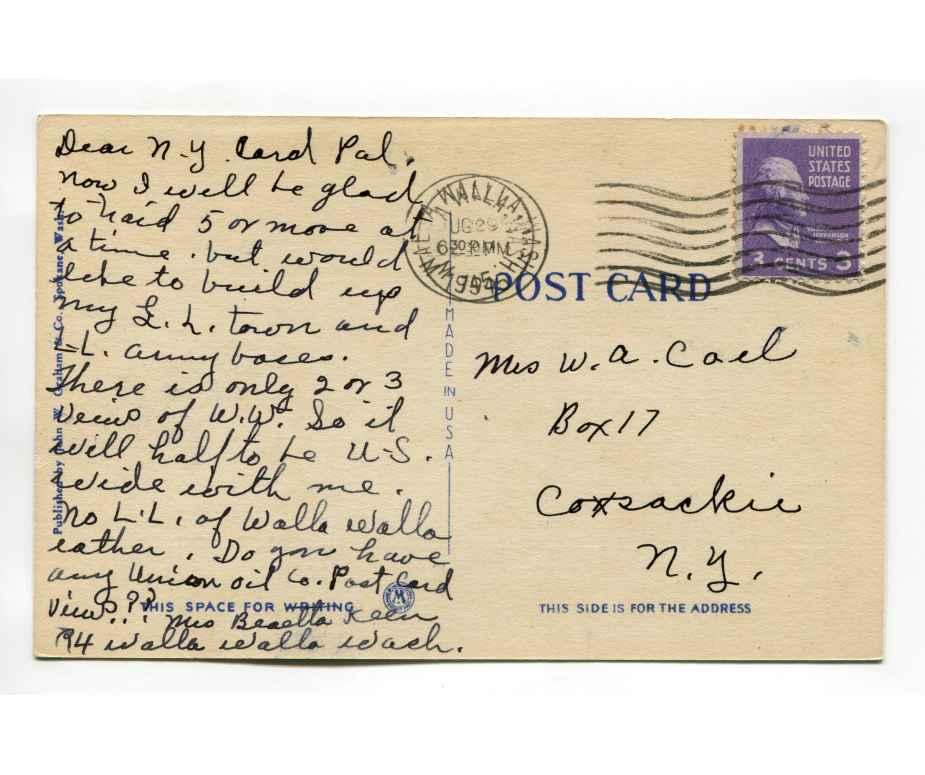 Dear N-Y. Card Pal.
now I will be glad
to haid 5 or more at
a time. but would
like to build up
my L. L. town and
L-L. army bases.
There is only 2 or 3
veiws of W.W. So it
will half to be U-S.
wide with me.
No L.L. of Walla Walla
eather. Do you have
any Union oil Co. Post Card
views??
Mrs Keen
94 Walla Walla Wash.
THIS SPACE FOR WRITING
Published by John W. Graham & Co. Spokane, Wash.
MADE IN USA
WALLA WALLA WASH
AUG 29
6 30 PM
1954
UNITED
STATES
POSTAGE
THOMAS
JEFFERSON
3 CENTS 3
POST CARD
Mrs W. A. Cael
Box 17
Coxsackie
N. Y.
THIS SIDE IS FOR THE ADDRESS